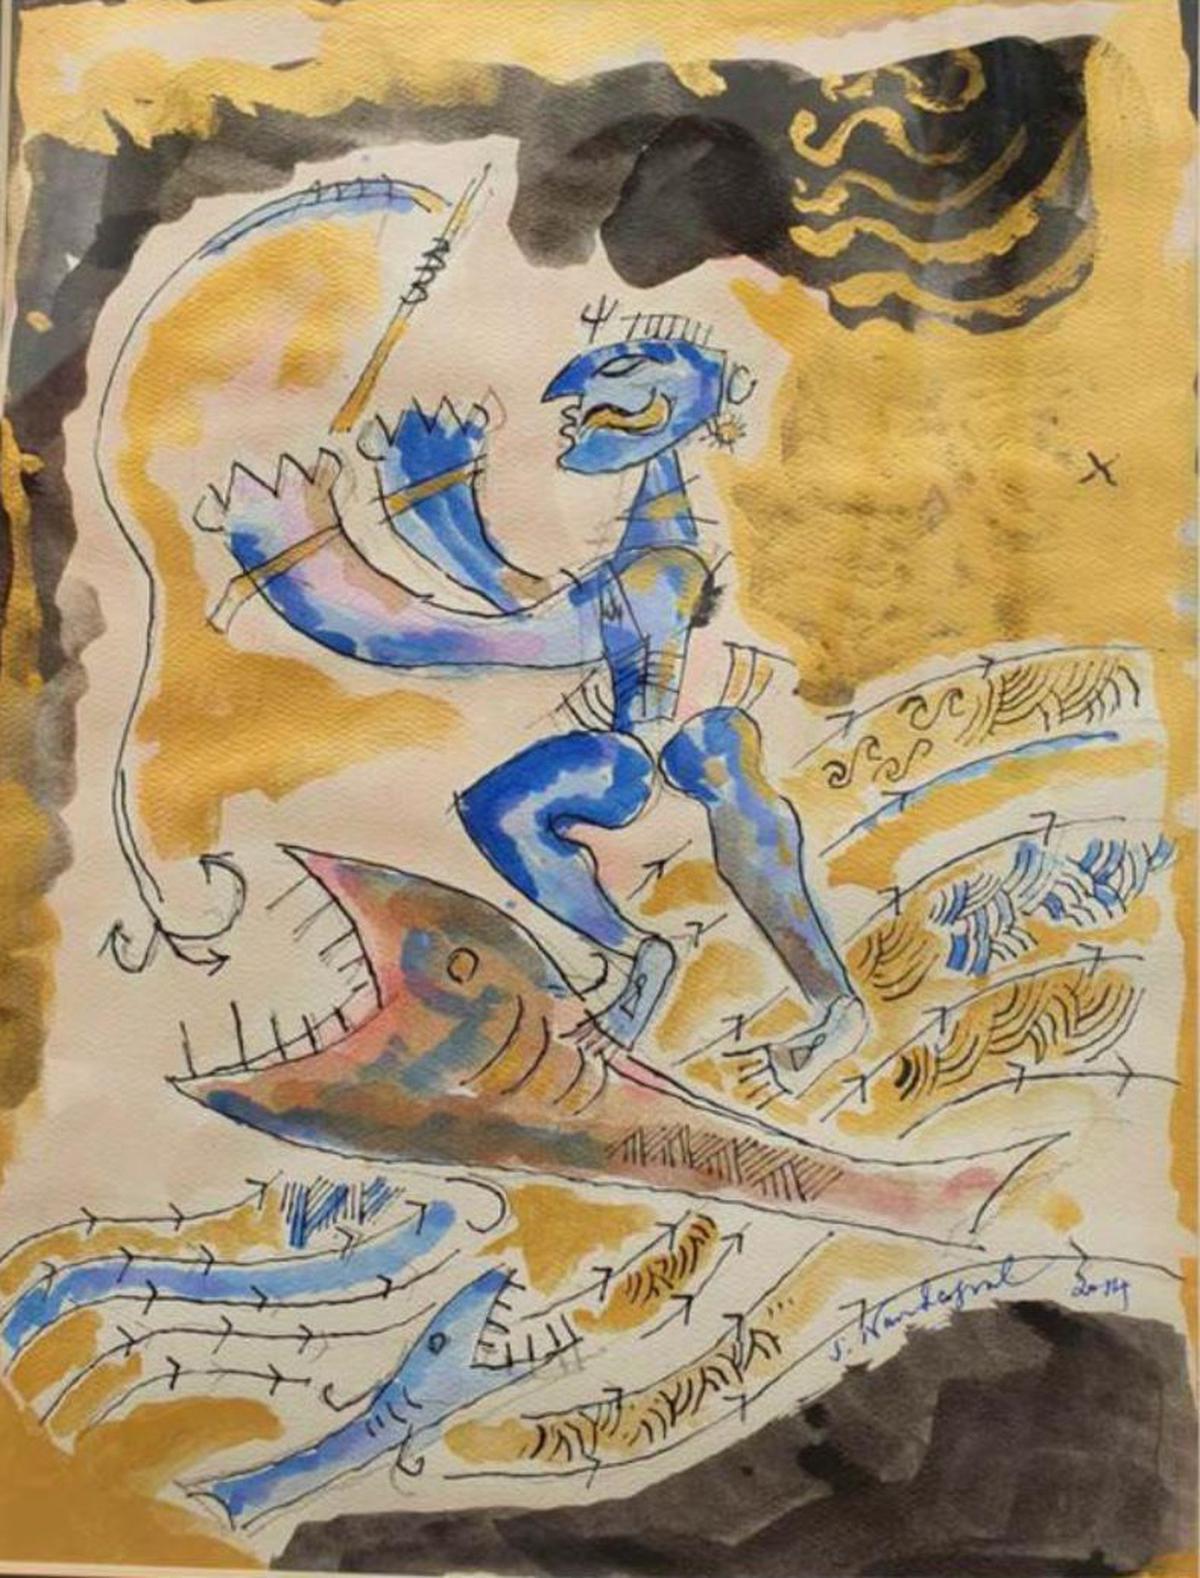 S. Nandagopal 2014